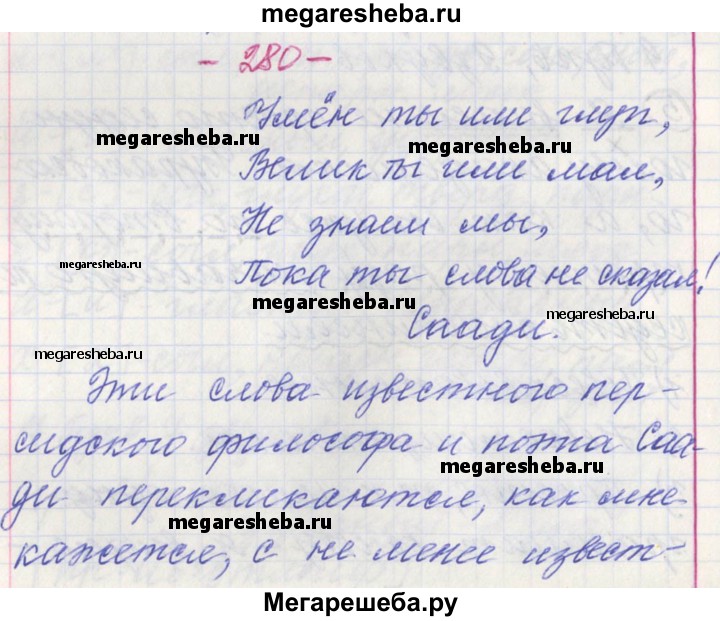 megaresheba.ru
- 280 -
Умён ты или глуп,
megaresheba.ru
megaresheba.ru
Велик ты или мал,
Не знаем мы,
megaresheba.ru
Пока ты слова не сказал!
megaresheba.ru
megaresheba.ru
Саади.
megaresheba.ru
Эти слова известного пер-
сидского философа и поэта Саа-
megaresheba.ru
ди перекликаются, как мне
megaresheba.ru
кажется, с не менее извест-
Мегарешеба.ру